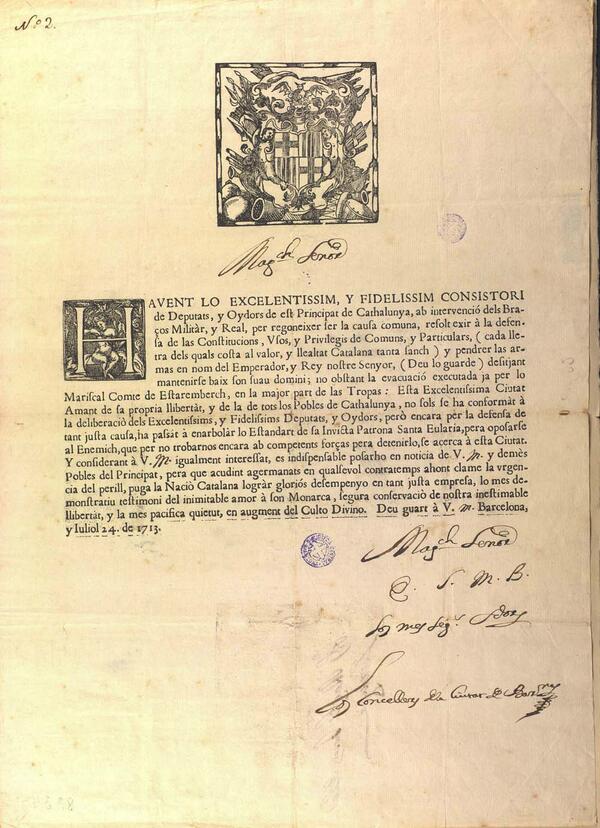 Nº 2.
Magch Senor
HAVENT LO EXCELENTISSIM, Y FIDELISSIM CONSISTORI
de Deputats, y Oydors de est Principat de Cathalunya, ab intervenció dels Bra-
ços Militàr, y Real, per regoneixer ser la causa comuna, resolt exir à la defen-
sa de las Constitucions, Vsos, y Privilegis de Comuns, y Particulars, ( cada lle-
tra dels quals costa al valor, y llealtat Catalana tanta sanch ) y pendrer las ar-
mas en nom del Emperador, y Rey nostre Senyor, (Deu lo guarde) desitjant
mantenirse baix son suau domini; no obstant la evacuació executada ja per lo
Mariscal Comte de Estaremberch, en la major part de las Tropas: Esta Excelentissima Ciutat
Amant de sa propria llibertàt, y de la de tots los Pobles de Cathalunya, no sols se ha conformàt à
la deliberaciò dels Excelentissims, y Fidelissims Deputats, y Oydors, però encara per la defensa de
tant justa causa, ha passàt à enarbolàr lo Estandart de sa Invicta Patrona Santa Eularia, pera oposarse
al Enemich, que per no trobarnos encara ab competents forças pera detenirlo, se acerca à esta Ciutat.
Y considerant à V. M. igualment interessat, es indispensable posarho en noticia de V. M. y demès
Pobles del Principat, pera que acudint agermanats en qualsevol contratemps ahont clame la vrgen-
cia del perill, puga la Naciò Catalana logràr gloriós desempenyo en tant justa empresa, lo mes de-
monstratiu testimoni del inimitable amor à son Monarca, segura conservaciò de nostra inestimable
llibertàt, y la mès pacifica quietut, en augment del Culto Divino. Deu guart à V. M. Barcelona,
y Iuliol 24. de 1713.
Magch Senor
S. M. B.
Son mes Seg.s
Los Concellers de la Ciutat de Barna